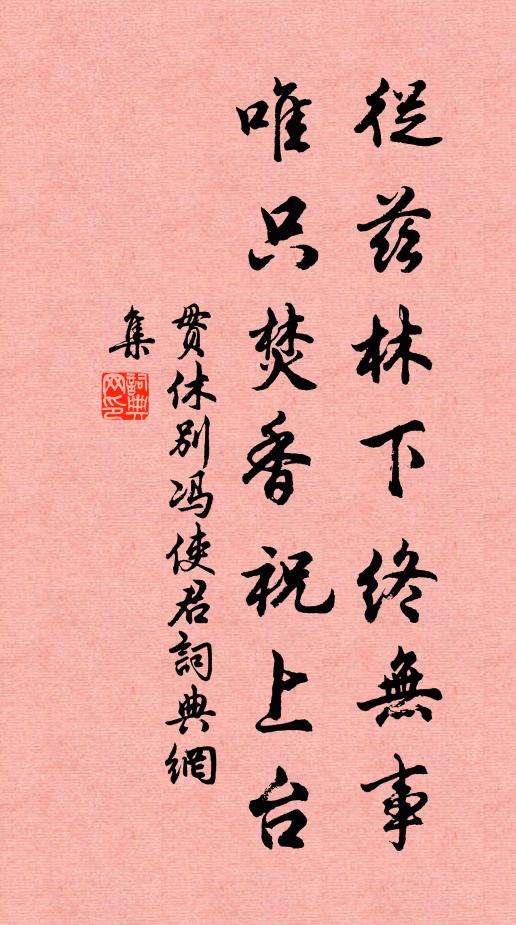 從茲林下終無事
唯只焚香祝上台
貫休別冯使君詞典網
集
詞典
网印